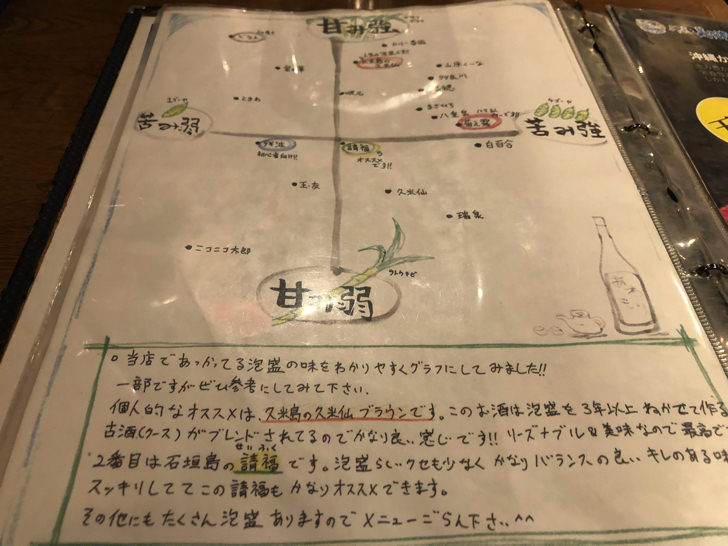 甘み強
カリー春雨
山原くいな
与那国
残波
ときわ
まさひろ
八重泉
ゴーヤ
苦み弱
ゴーヤ
苦み強
白百合
初心者向け!!
請福
オススメ
です!!
玉友
久米仙
瑞泉
ニコニコ太郎
サトウキビ
甘み弱
沖縄
。当店であつかってる泡盛の味をわかりやすくグラフにしてみました!!
一部ですがぜひ参考にしてみて下さい.
個人的なオススメは、久米島の久米仙ブラウンです。このお酒は泡盛を3年以上ねかせて作る
古酒(クース)がブレンドされてるのでかなり良い感じです!!リーズナブル&美味なので最高で
せいふく
2番目は石垣島の請福です。泡盛らしいクセも少なくかなりバランスの良いキレのある味
スッキリしててこの請福もかなりオススメできます。
その他にもたくさん泡盛ありますのでメニューごらん下さい^^